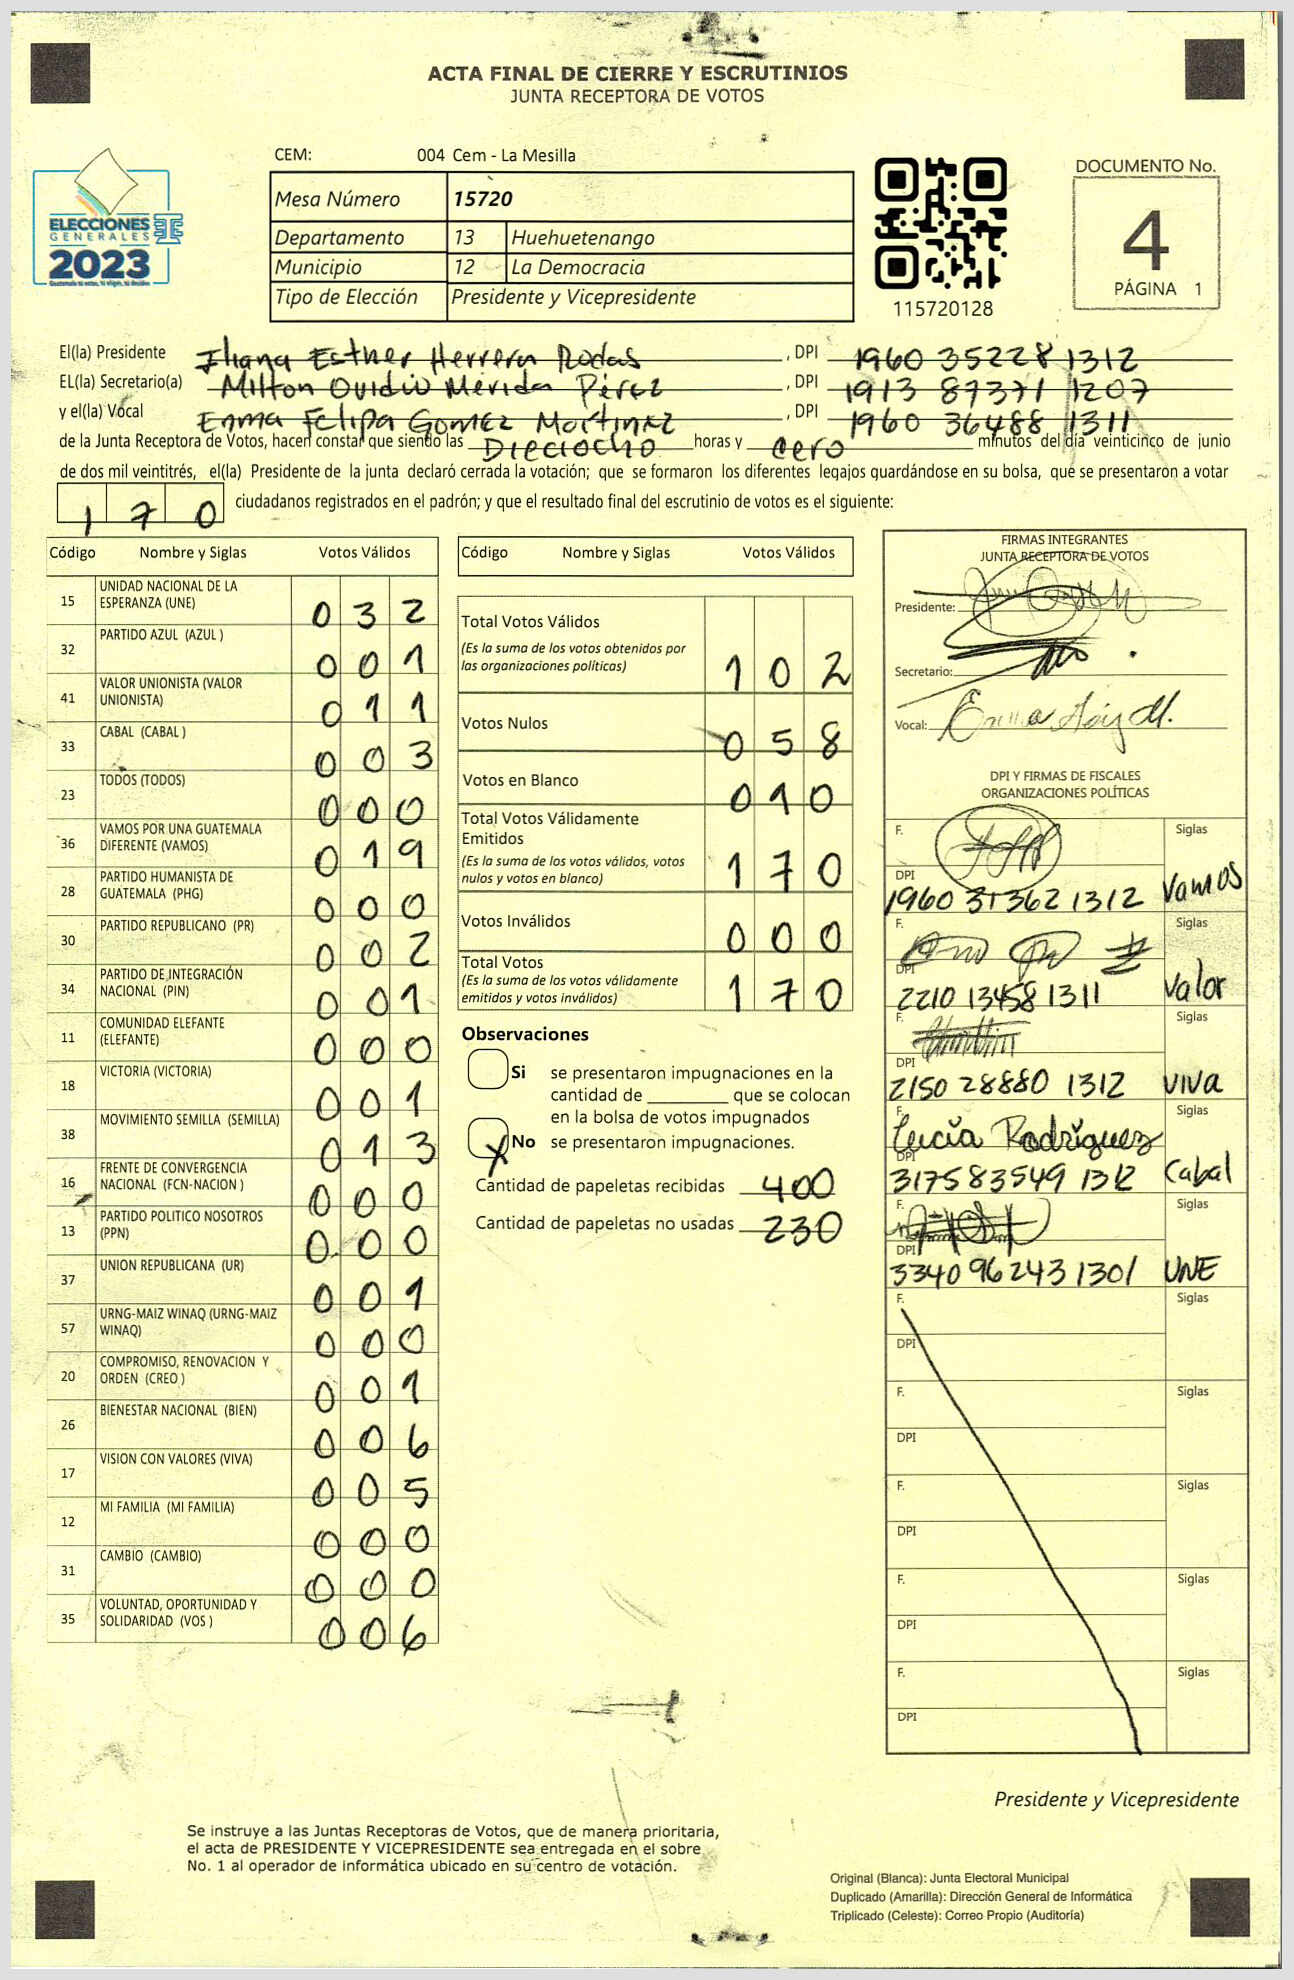 ACTA FINAL DE CIERRE Y ESCRUTINIOS
JUNTA RECEPTORA DE VOTOS
ELECCIONES
GENERALES
2023
CEM: 004 Cem - La Mesilla
Mesa Número 15720
Departamento 13 Huehuetenango
Municipio 12 La Democracia
Tipo de Elección Presidente y Vicepresidente
115720128
DOCUMENTO No.
4
PÁGINA 1
El(la) Presidente Iliana Esther Herrera Rodas , DPI 1960 35228 1312
EL(la) Secretario(a) Milton Ovidio Mérida Pérez , DPI 1913 87371 1207
y el(la) Vocal Enma Felipa Gomez Martinez , DPI 1960 36488 1311
de la Junta Receptora de Votos, hacen constar que siendo las Dieciocho horas y cero minutos del día veinticinco de junio
de dos mil veintitrés, el(la) Presidente de la junta declaró cerrada la votación; que se formaron los diferentes legajos guardándose en su bolsa, que se presentaron a votar
170 ciudadanos registrados en el padrón; y que el resultado final del escrutinio de votos es el siguiente:
Código Nombre y Siglas Votos Válidos
15 UNIDAD NACIONAL DE LA ESPERANZA (UNE) 032
32 PARTIDO AZUL (AZUL ) 001
41 VALOR UNIONISTA (VALOR UNIONISTA) 011
33 CABAL (CABAL ) 003
23 TODOS (TODOS) 000
36 VAMOS POR UNA GUATEMALA DIFERENTE (VAMOS) 019
28 PARTIDO HUMANISTA DE GUATEMALA (PHG) 000
30 PARTIDO REPUBLICANO (PR) 002
34 PARTIDO DE INTEGRACIÓN NACIONAL (PIN) 001
11 COMUNIDAD ELEFANTE (ELEFANTE) 000
18 VICTORIA (VICTORIA) 001
38 MOVIMIENTO SEMILLA (SEMILLA) 013
16 FRENTE DE CONVERGENCIA NACIONAL (FCN-NACION ) 000
13 PARTIDO POLITICO NOSOTROS (PPN) 000
37 UNION REPUBLICANA (UR) 001
57 URNG-MAIZ WINAQ (URNG-MAIZ WINAQ) 000
20 COMPROMISO, RENOVACION Y ORDEN (CREO ) 001
26 BIENESTAR NACIONAL (BIEN) 006
17 VISION CON VALORES (VIVA) 005
12 MI FAMILIA (MI FAMILIA) 000
31 CAMBIO (CAMBIO) 000
35 VOLUNTAD, OPORTUNIDAD Y SOLIDARIDAD (VOS ) 006
Código Nombre y Siglas Votos Válidos
Total Votos Válidos 102
(Es la suma de los votos obtenidos por
las organizaciones políticas)
Votos Nulos 058
Votos en Blanco 010
Total Votos Válidamente
Emitidos 170
(Es la suma de los votos válidos, votos
nulos y votos en blanco)
Votos Inválidos 000
Total Votos 170
(Es la suma de los votos válidamente
emitidos y votos inválidos)
Observaciones
Si se presentaron impugnaciones en la
cantidad de ________ que se colocan
en la bolsa de votos impugnados
X No se presentaron impugnaciones.
Cantidad de papeletas recibidas 400
Cantidad de papeletas no usadas 230
FIRMAS INTEGRANTES
JUNTA RECEPTORA DE VOTOS
Presidente:
Secretario:
Vocal:
DPI Y FIRMAS DE FISCALES
ORGANIZACIONES POLÍTICAS
F. Siglas
DPI 1960 31362 1312 Vamos
F. Siglas
DPI 2210 13458 1311 Valor
F. Siglas
DPI 2150 28880 1312 VIVA
F. Lucía Rodríguez Siglas
DPI 3175 83549 1312 Cabal
F. Siglas
DPI 3340 96243 1301 UNE
F. Siglas
DPI
F. Siglas
DPI
F. Siglas
DPI
F. Siglas
DPI
F. Siglas
DPI
Presidente y Vicepresidente
Se instruye a las Juntas Receptoras de Votos, que de manera prioritaria,
el acta de PRESIDENTE Y VICEPRESIDENTE sea entregada en el sobre
No. 1 al operador de informática ubicado en su centro de votación.
Original (Blanca): Junta Electoral Municipal
Duplicado (Amarilla): Dirección General de Informática
Triplicado (Celeste): Correo Propio (Auditoría)